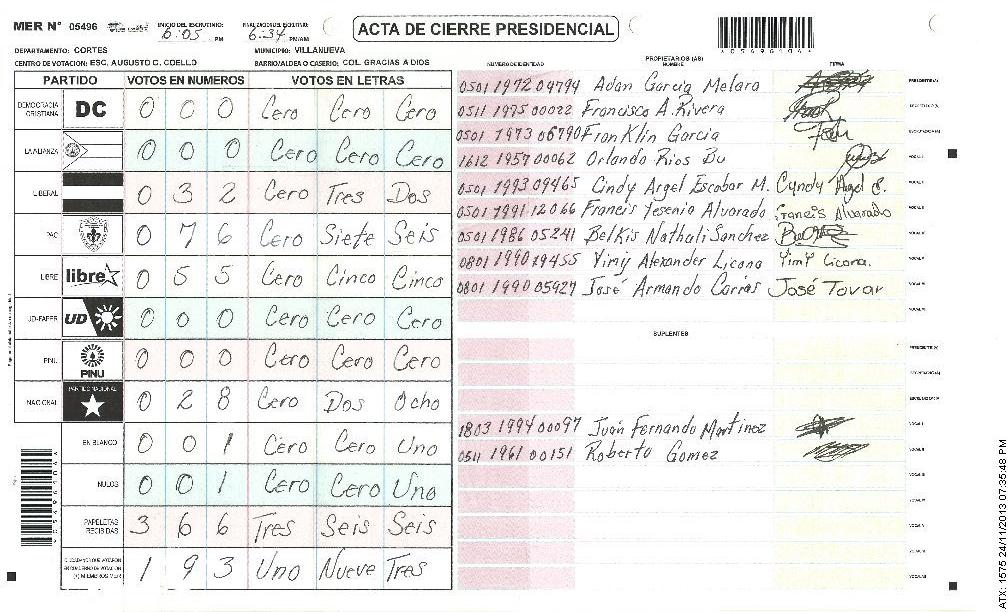 MER N° 05496 INICIO DEL ESCRUTINIO: 6:05 PM FINALIZACION DEL ESCRUTINIO: 6:34 PM/AM ACTA DE CIERRE PRESIDENCIAL
DEPARTAMENTO: CORTES MUNICIPIO: VILLANUEVA
CENTRO DE VOTACION: ESC. AUGUSTO C. COELLO BARRIO/ALDEA O CASERIO: COL. GRACIAS A DIOS
PARTIDO VOTOS EN NUMEROS VOTOS EN LETRAS
DEMOCRACIA CRISTIANA DC 0 0 0 Cero Cero Cero
LA ALIANZA 0 0 0 Cero Cero Cero
LIBERAL 0 3 2 Cero Tres Dos
PAC 0 7 6 Cero Siete Seis
LIBRE libre 0 5 5 Cero Cinco Cinco
UD-FAPER UD 0 0 0 Cero Cero Cero
PINU PINU 0 0 0 Cero Cero Cero
NACIONAL PARTIDO NACIONAL 0 2 8 Cero Dos Ocho
EN BLANCO 0 0 1 Cero Cero Uno
NULOS 0 0 1 Cero Cero Uno
PAPELETAS RECIBIDAS 3 6 6 Tres Seis Seis
CIUDADANOS QUE VOTARON EN CUADERNO DE VOTACION (+) MIEMBROS MER 1 9 3 Uno Nueve Tres
PROPIETARIOS (AS)
NUMERO DE IDENTIDAD NOMBRE FIRMA
0501 1972 04794 Adan Garcia Melara PRESIDENTE(A)
0511 1975 00022 Francisco A. Rivera SECRETARIO(A)
0501 1973 06790 Franklin Garcia ESCRUTADOR(A)
1612 1957 00062 Orlando Rios Bu VOCAL I
0501 1993 09465 Cindy Argel Escobar M. Cyndy Argel E. VOCAL II
0501 1991 12066 Francis Yesenia Alvarado Francis Alvarado VOCAL III
0501 1986 05241 Belkis Nathali Sanchez VOCAL IV
0801 1990 19455 Yimy Alexander Licona Yimy Licona. VOCAL V
0801 1990 05927 José Armando Carrás José Tovar VOCAL VI
SUPLENTES
PRESIDENTE(A)
SECRETARIO(A)
ESCRUTADOR(A)
1803 1994 00097 Juan Fernando Martinez VOCAL I
0511 1961 00151 Roberto Gomez VOCAL II
ATX: 1575 24/11/2013 07:35:48 PM